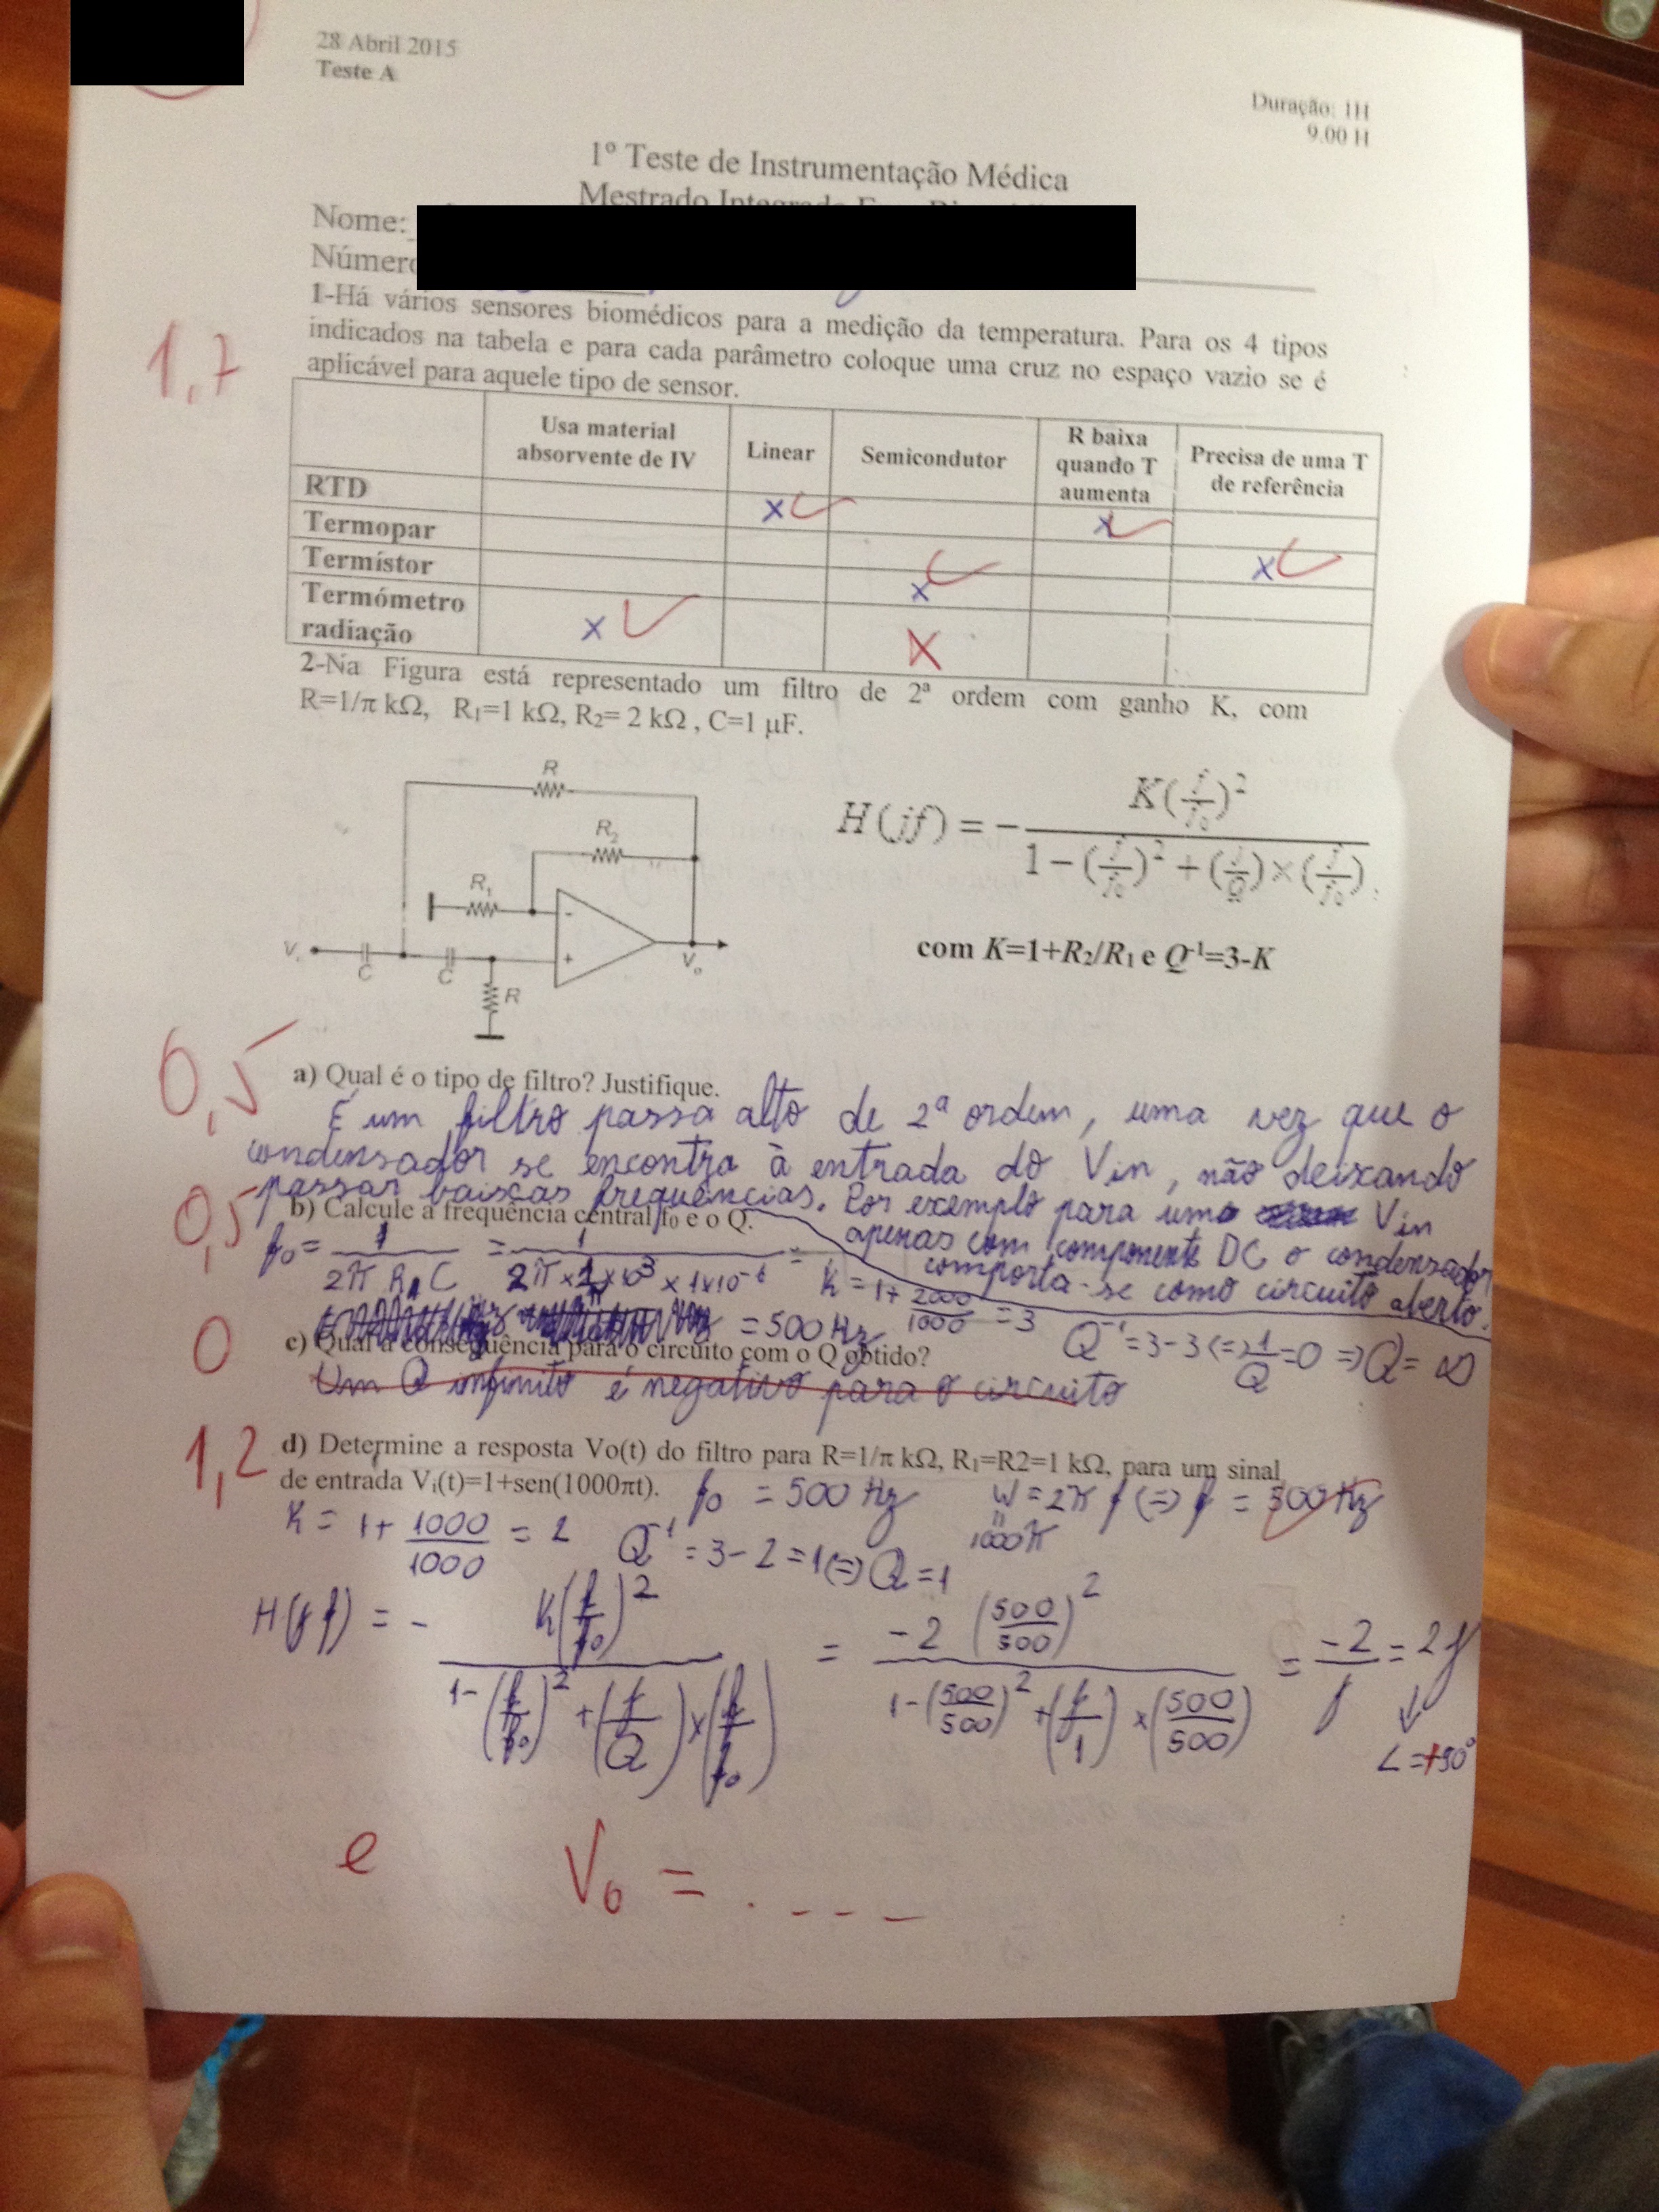 28 Abril 2015
Teste A
Duração: 1H
9.00 H
1º Teste de Instrumentação Médica
Mestrado Integrado
Nome:
Número
1-Há vários sensores biomédicos para a medição da temperatura. Para os 4 tipos
indicados na tabela e para cada parâmetro coloque uma cruz no espaço vazio se é
aplicável para aquele tipo de sensor.
1,7
Usa material absorvente de IV | Linear | Semicondutor | R baixa quando T aumenta | Precisa de uma T de referência
RTD x
Termopar x
Termístor x x
Termómetro radiação x X
2-Na Figura está representado um filtro de 2ª ordem com ganho K, com
R=1/π kΩ, R1=1 kΩ, R2= 2 kΩ , C=1 μF.
R
R2
R1
- +
Vi C C R Vo
H(jf) = - K(f/f0)^2 / 1-(f/f0)^2+(j/Q)×(f/f0)
com K=1+R2/R1 e Q-1=3-K
0,5
a) Qual é o tipo de filtro? Justifique.
É um filtro passa alto de 2ª ordem, uma vez que o
condensador se encontra à entrada do Vin, não deixando
passar baixas frequências. Por exemplo para uma Vin
apenas com componente DC o condensador
comporta-se como circuito aberto.
0,5
b) Calcule a frequência central f0 e o Q.
f0 = 1 / 2π R C = 1 / 2π × × 10^3 × 1×10^-6 =
= 500 Hz
K = 1+ 2000/1000 = 3
Q^-1 = 3-3 (=) 1/Q = 0 => Q = ∞
0
c) Qual a consequência para o circuito com o Q obtido?
Um Q infinito é negativo para o circuito
1,2
d) Determine a resposta Vo(t) do filtro para R=1/π kΩ, R1=R2=1 kΩ, para um sinal
de entrada Vi(t)=1+sen(1000πt).
f0 = 500 Hz
W = 2π f (=) f = 500 Hz
1000π
K = 1+ 1000/1000 = 2
Q^-1 = 3-2 = 1 (=) Q = 1
H(jf) = - K(f/f0)^2 / 1-(f/f0)^2+(j/Q)×(f/f0) = -2 (500/500)^2 / 1-(500/500)^2+(j/1)×(500/500) = -2/j = 2j
∠=+90°
e Vo = . - - -